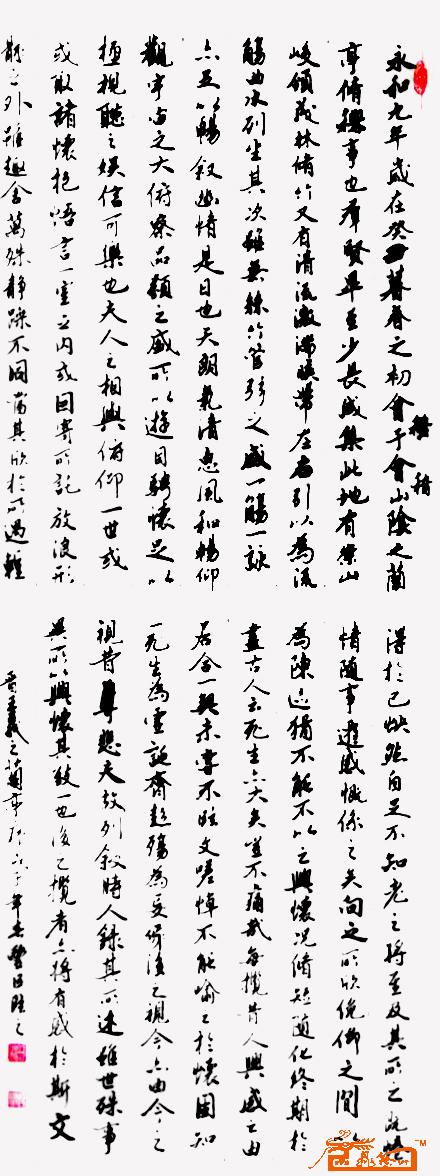 永和九年歲在癸丑暮春之初會于會山陰之蘭
稽
亭脩禊事也羣賢畢至少長咸集此地有崇山
峻領茂林脩竹又有清流激湍暎帶左右引以為流
觴曲水列坐其次雖無絲竹管弦之盛一觴一詠
亦足以暢敘幽情是日也天朗氣清惠風和暢仰
觀宇宙之大俯察品類之盛所以遊目騁懷足以
極視聽之娛信可樂也夫人之相與俯仰一世或
或取諸懷抱悟言一室之內或因寄所託放浪形
骸之外雖趣舍萬殊靜躁不同當其欣於所遇輕
得於己快然自足不知老之將至及其所之既惓
情隨事遷感慨係之矣向之所欣俛仰之間以
為陳迹猶不能不以之興懷況脩短隨化終期於
盡古人云死生亦大矣豈不痛哉每攬昔人興感之由
若合一契未嘗不臨文嗟悼不能喻之於懷固知
一死生為虛誕齊彭殤為妄作後之視今亦由今之
視昔悲夫故列敘時人錄其所述雖世殊事
異所以興懷其致一也後之攬者亦將有感於斯文
晉王羲之蘭亭序